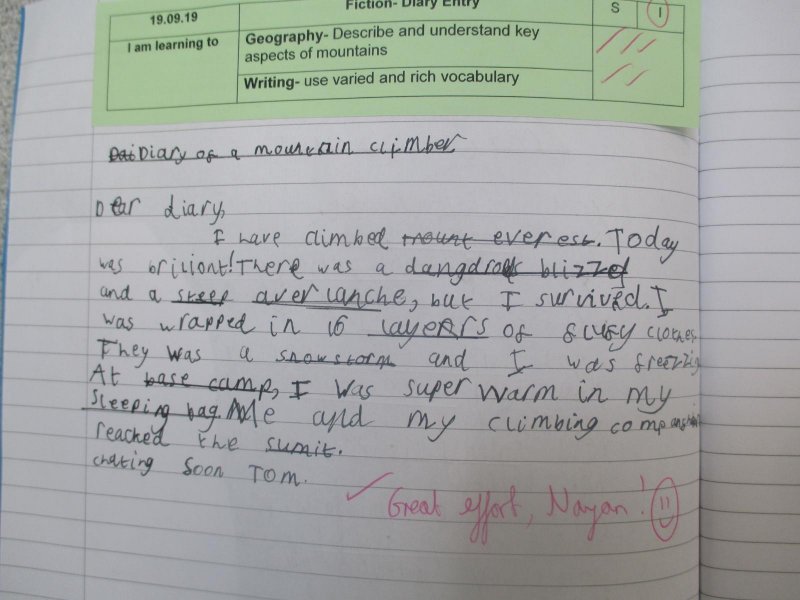 Fiction- Diary Entry
19.09.19
S
I
I am learning to
Geography- Describe and understand key
aspects of mountains
Writing- use varied and rich vocabulary
Diary of a mountain climber
Dear diary,
I have climbed mount everest. Today
was briliont! There was a blizzey
and a steep averlanche, but I survived. I
was wrapped in 16 layers of clothes
They was a snowstorm and I was freezzing
At base camp, I was super warm in my
sleeping bag Me and my climbing companion
reached the sumit.
chating soon TOM.
Great effort, Nayan!